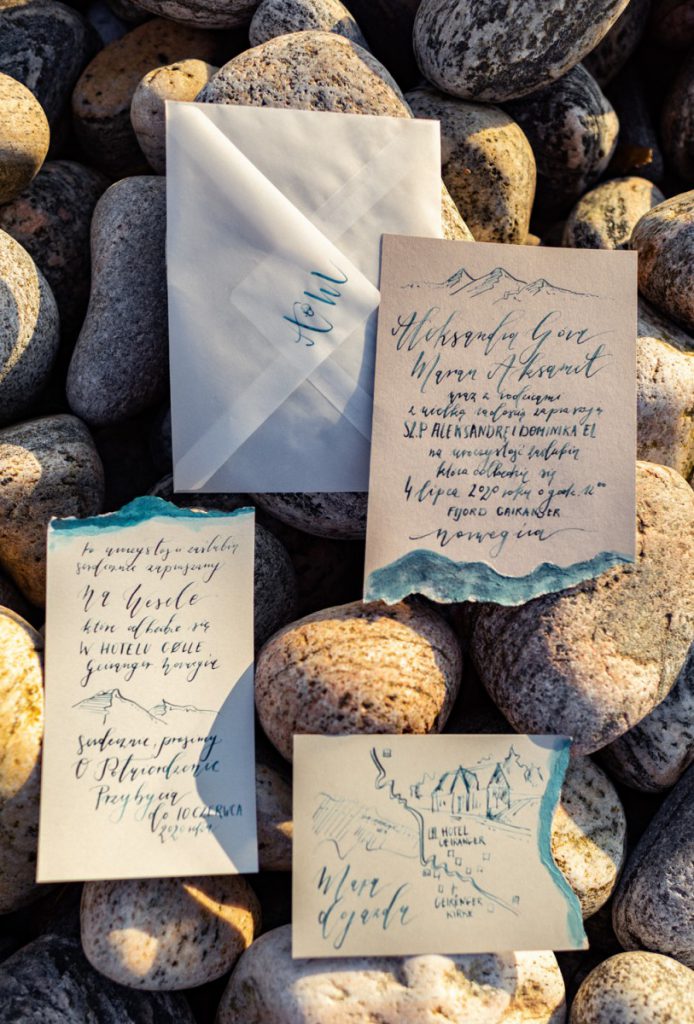 A&M
Aleksandra Góra
Maran Aksamit
wraz z rodzicami
z wielką radością zapraszają
SZ.P ALEKSANDRĘ I DOMINIKA EL
na uroczystość zaślubin
która odbędzie się
4 lipca 2020 roku o godz. 12⁰⁰
FIJORD GAIRANGER
Norwegia
Po uroczystości zaślubin
serdecznie zapraszamy
Na Wesele
które odbędzie się
W HOTELU
Geiranger Norwegia
serdecznie prosimy
O Potwierdzenie
Przybycia
do 10 CZERWCA
2020 roku
HOTEL
GEIRANGER
GEIRENGER
KIRKE
Mapa
dojazdu